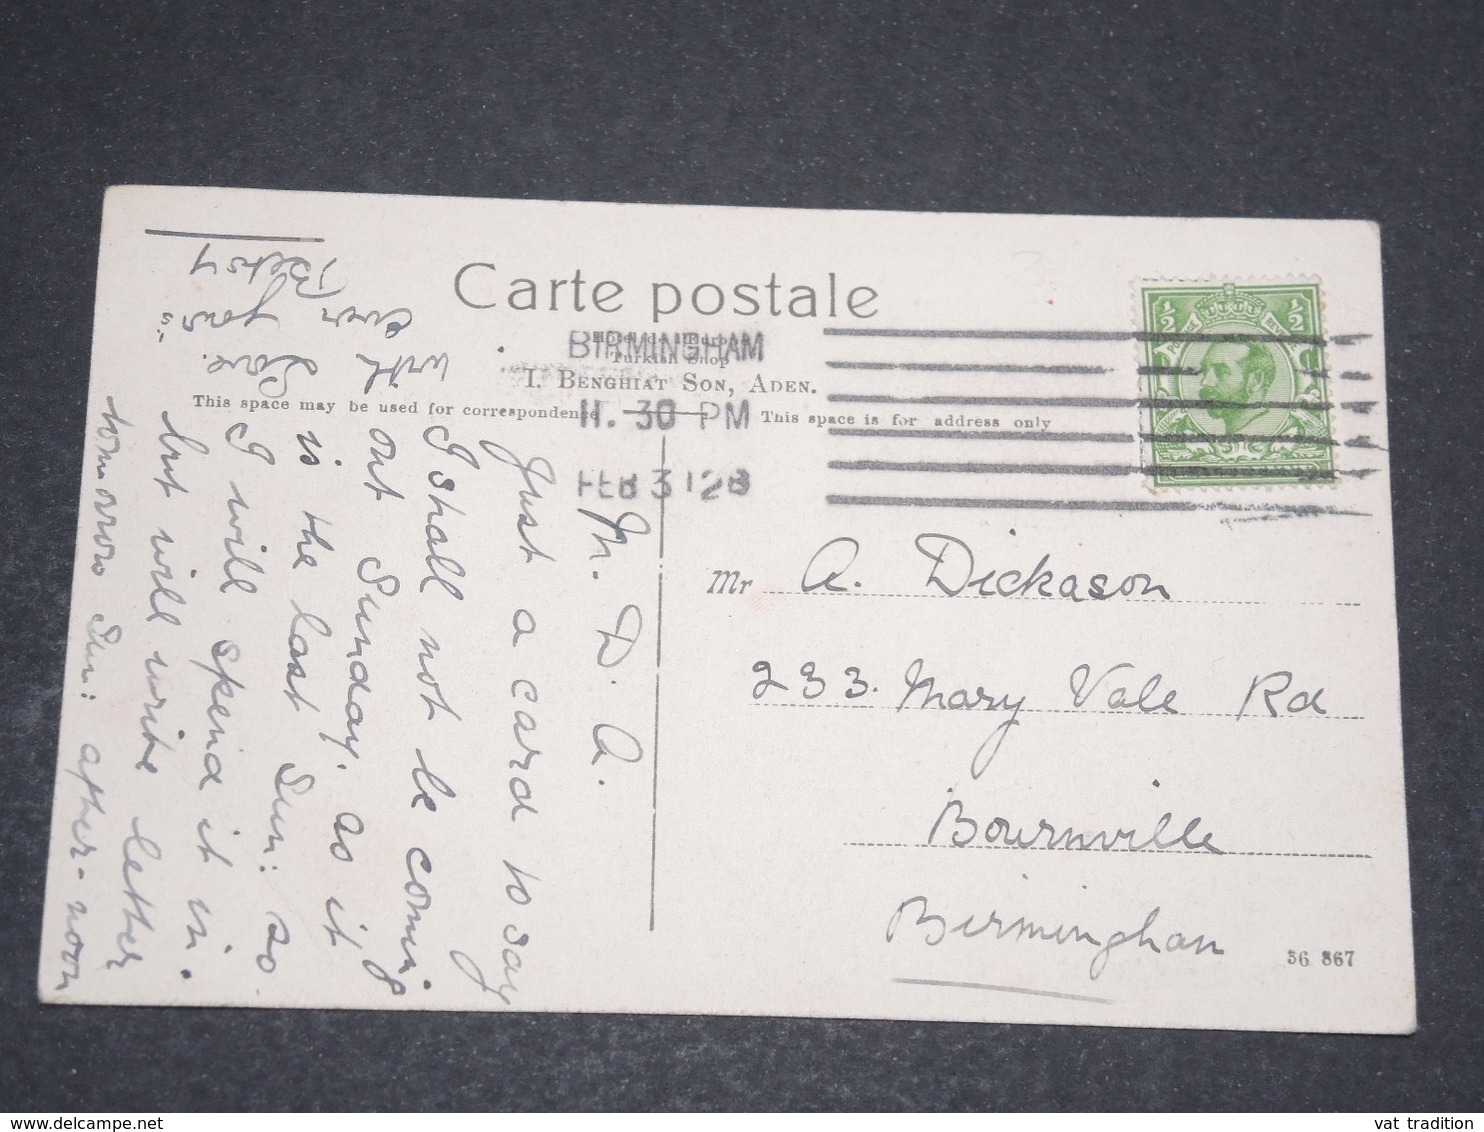 Carte postale
BIRMINGHAM
11. 30 PM
FEB 3 12 B
Turkish Shop
I. BENGHIAT SON, ADEN.
This space may be used for correspondence
This space is for address only
½ ½
M. D. A.
Just a card to say
I shall not be coming
out Sunday. as it
is the last Sun: so
I will spend it in.
but will write letter
tomorrow Sun: after-noon
with love.
ever yours
Betsy
Mr A. Dickason
233. Mary Vale Rd
Bournville
Birmingham
36 867
delcampe.net
vat tradition